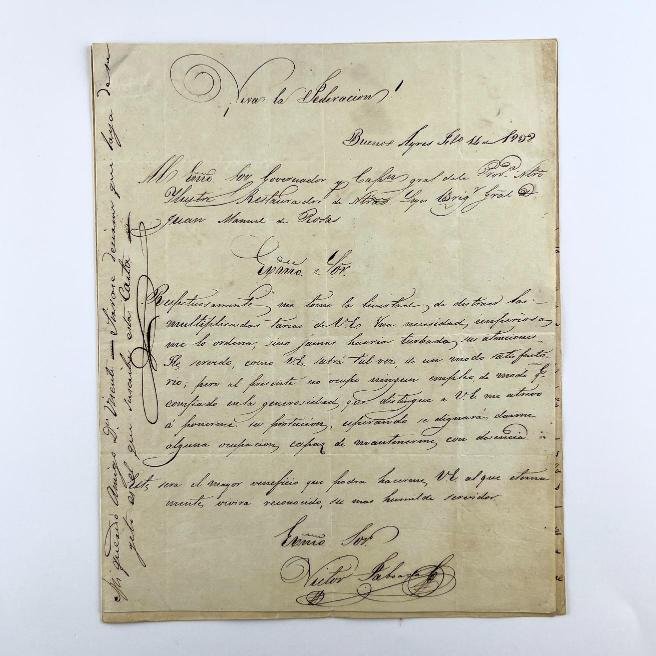 ¡Viva la Federacion!
Buenos Ayres Feb.o 14 de
Al Exmo. Sor Governador y Capn. gral de la Prov.a Ntro
Ilustre Restaurador de Ntras Leyes Brigr. Gral Dn
Juan Manuel de Rosas
Exmo. Sor.
Respetuosamente me tomo la de distraer las
multiplicadas tareas de V.E. Una necesidad imperiosa
me lo ordena, sino jamas havria turbado sus atenciones.
He servido, como V.E. sabrá tal vez, de un modo satisfacto
rio; pero al presente no ocupo ningun empleo de modo q.e
confiado en la generosidad, q.e distingue a V.E. me atrevo
á ponerme su proteccion, esperando se dignará darme
alguna ocupacion capaz de mantenerme con desencia
Este sera el mayor beneficio que podra hacerme V.E. al que eterna
mente vivira reconocido, su mas humilde servidor.
Exmo Sor.
Victor
Mi querido Amigo Dn. Vicente deciarme que haga de su
esta Carta